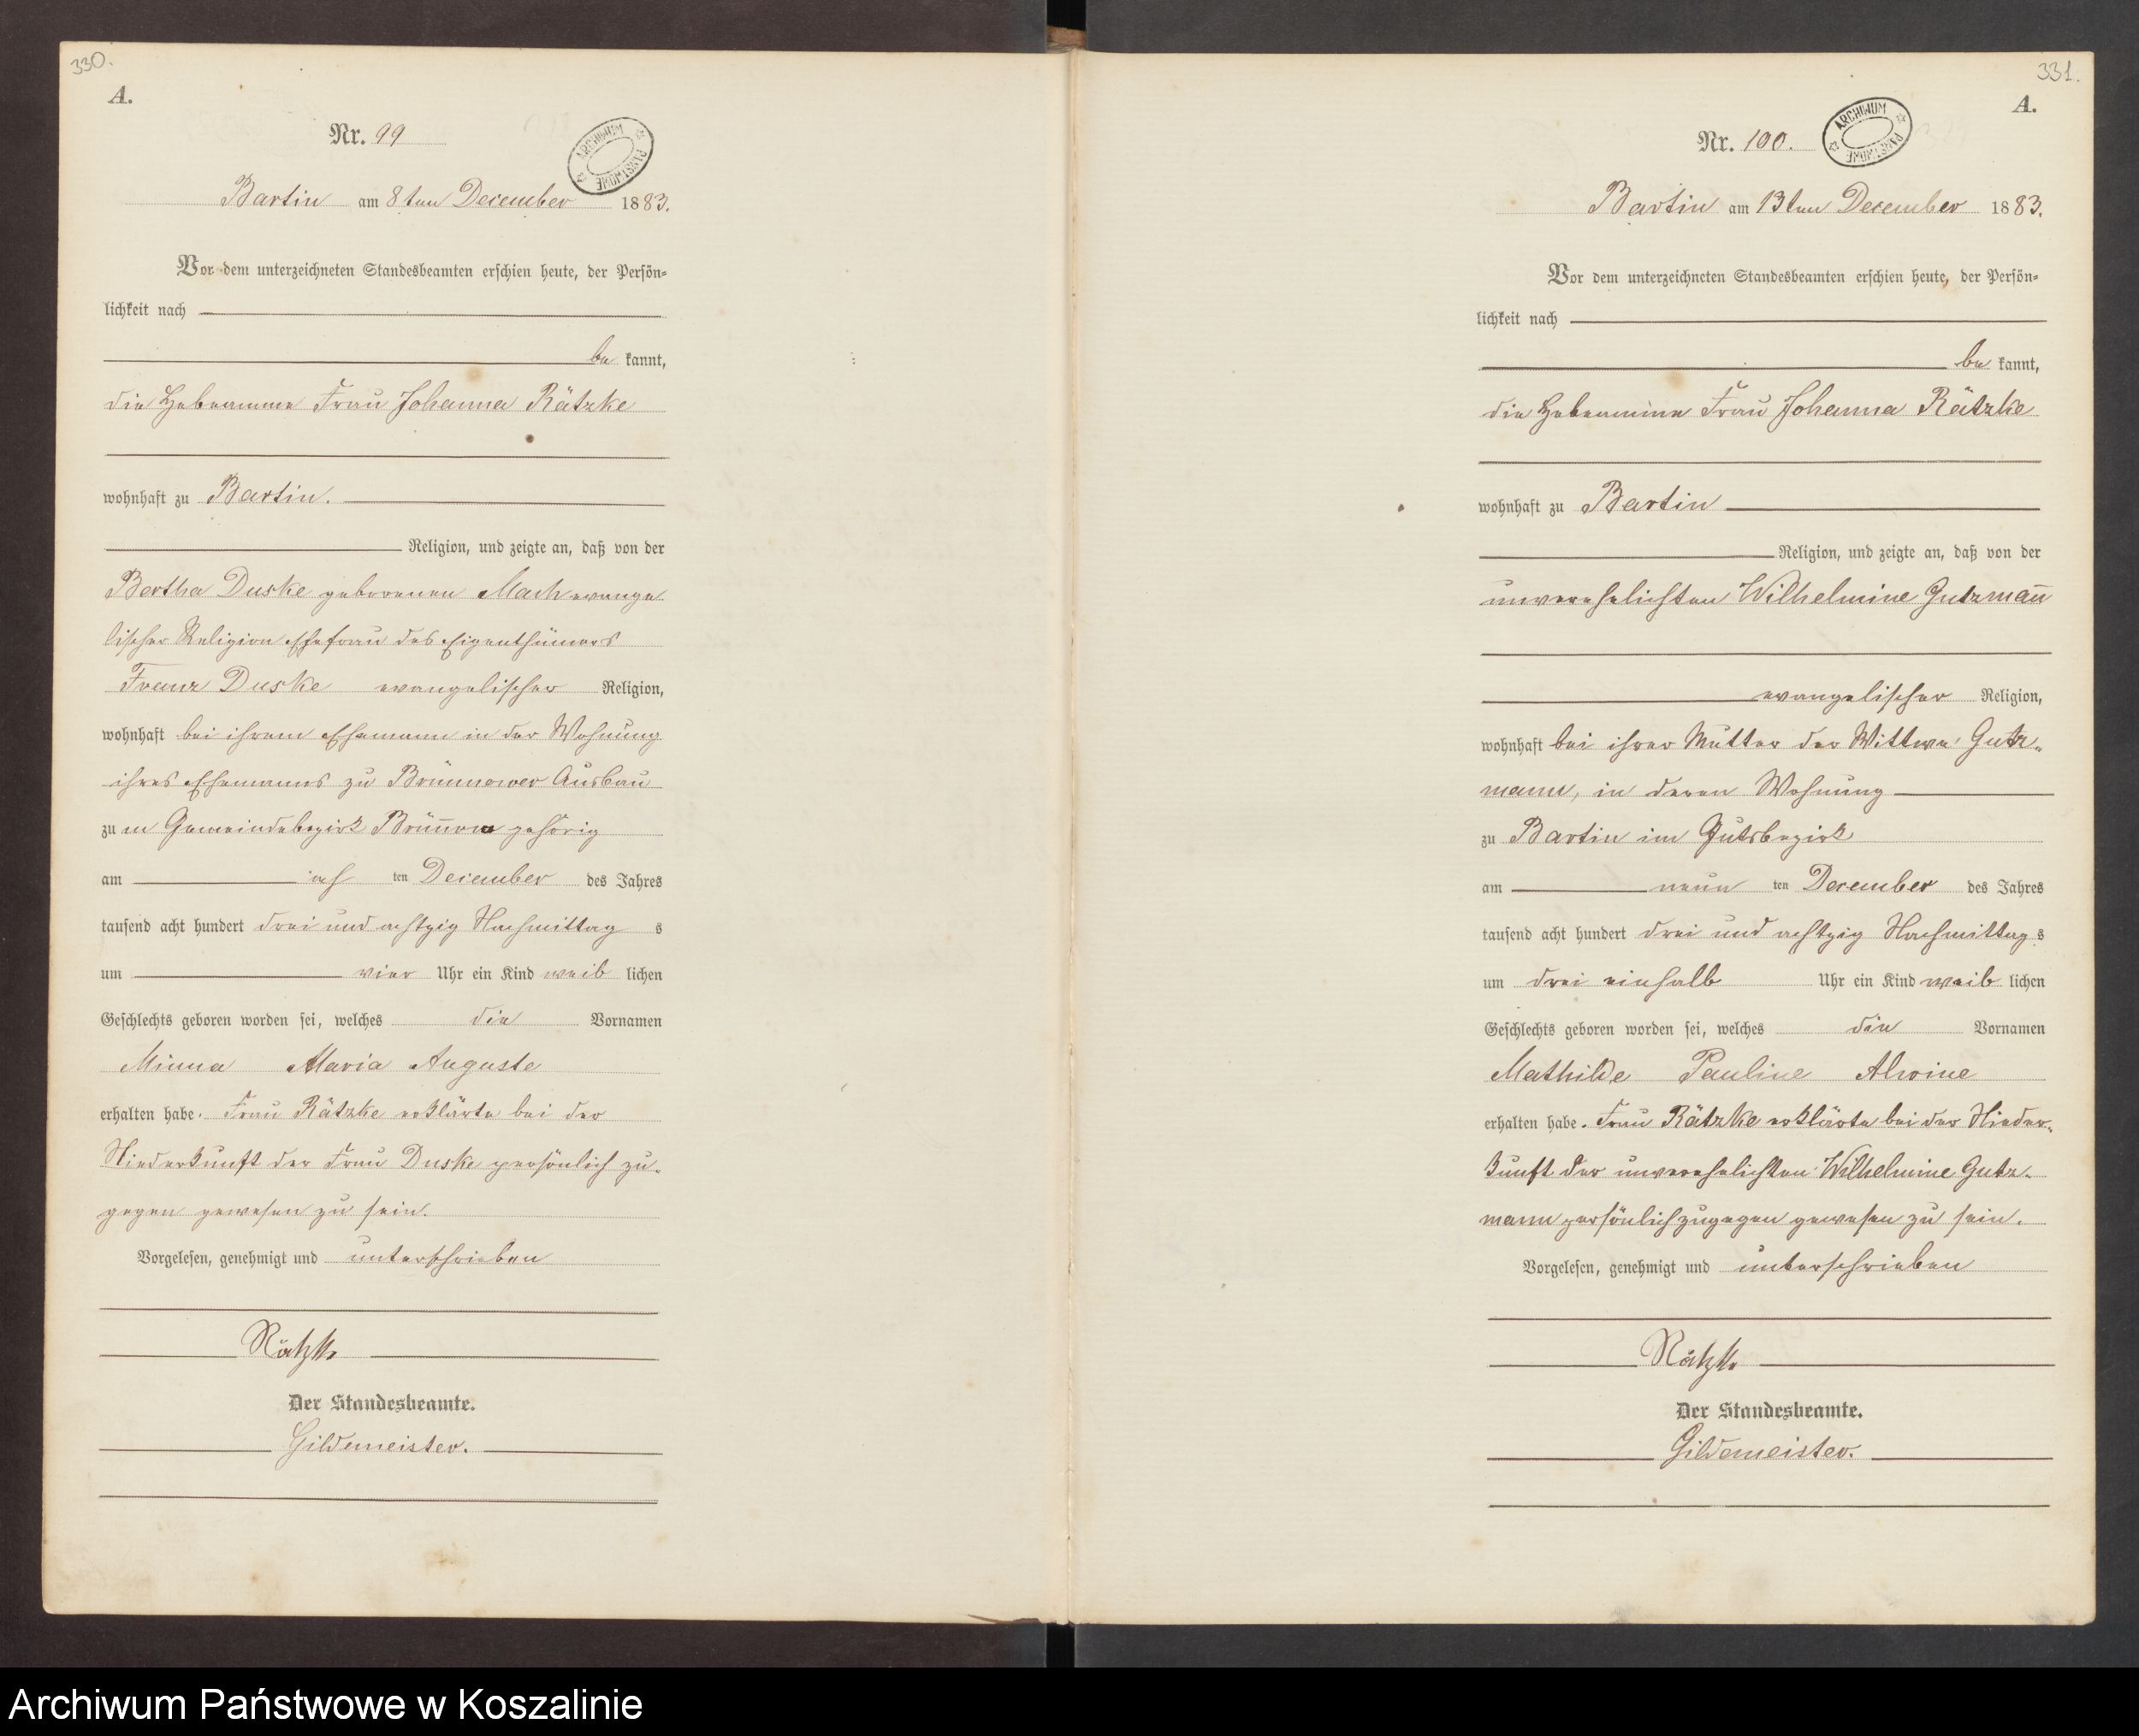 330.
A.
Nr. 99
ARCHIWUM PAŃSTWOWE
Bartin am 8ten December 1883.
Vor dem unterzeichneten Standesbeamten erschien heute, der Persön-
lichkeit nach
be kannt,
die Hebeamme Frau Johanna Rätzke
wohnhaft zu Bartin.
Religion, und zeigte an, daß von der
Bertha Duske geborenen Mach evange
lischer Religion Ehefrau des Eigenthümers
Franz Duske evangelischer Religion,
wohnhaft bei ihrem Ehemann in der Wohnung
ihres Ehemanns zu Brünnower Ausbau
zu m Gemeindebezirk Brünnow gehörig
am ach ten December des Jahres
tausend acht hundert drei und achtzig Nachmittag s
um vier Uhr ein Kind weib lichen
Geschlechts geboren worden sei, welches die Vornamen
Minna Maria Auguste
erhalten habe. Frau Rätzke erklärte bei der
Niederkunft der Frau Duske persönlich zu-
gegen gewesen zu sein.
Vorgelesen, genehmigt und unterschrieben
Rätzke
Der Standesbeamte.
Gildemeister.
331.
A.
Nr. 100.
ARCHIWUM PAŃSTWOWE
Bartin am 13ten December 1883.
Vor dem unterzeichneten Standesbeamten erschien heute, der Persön-
lichkeit nach
be kannt,
die Hebeamme Frau Johanna Rätzke
wohnhaft zu Bartin
Religion, und zeigte an, daß von der
unverehelichten Wilhelmine Gutzmañ
evangelischer Religion,
wohnhaft bei ihrer Mutter der Wittwe Gutz-
mann, in deren Wohnung
zu Bartin im Gutsbezirk
am neun ten December des Jahres
tausend acht hundert drei und achtzig Nachmittag s
um drei einhalb Uhr ein Kind weib lichen
Geschlechts geboren worden sei, welches die Vornamen
Mathilde Pauline Alwine
erhalten habe. Frau Rätzke erklärte bei der Nieder-
kunft der unverehelichten Wilhelmine Gutz-
mann persönlich zugegen gewesen zu sein.
Vorgelesen, genehmigt und unterschrieben
Rätzke
Der Standesbeamte.
Gildemeister.
Archiwum Państwowe w Koszalinie